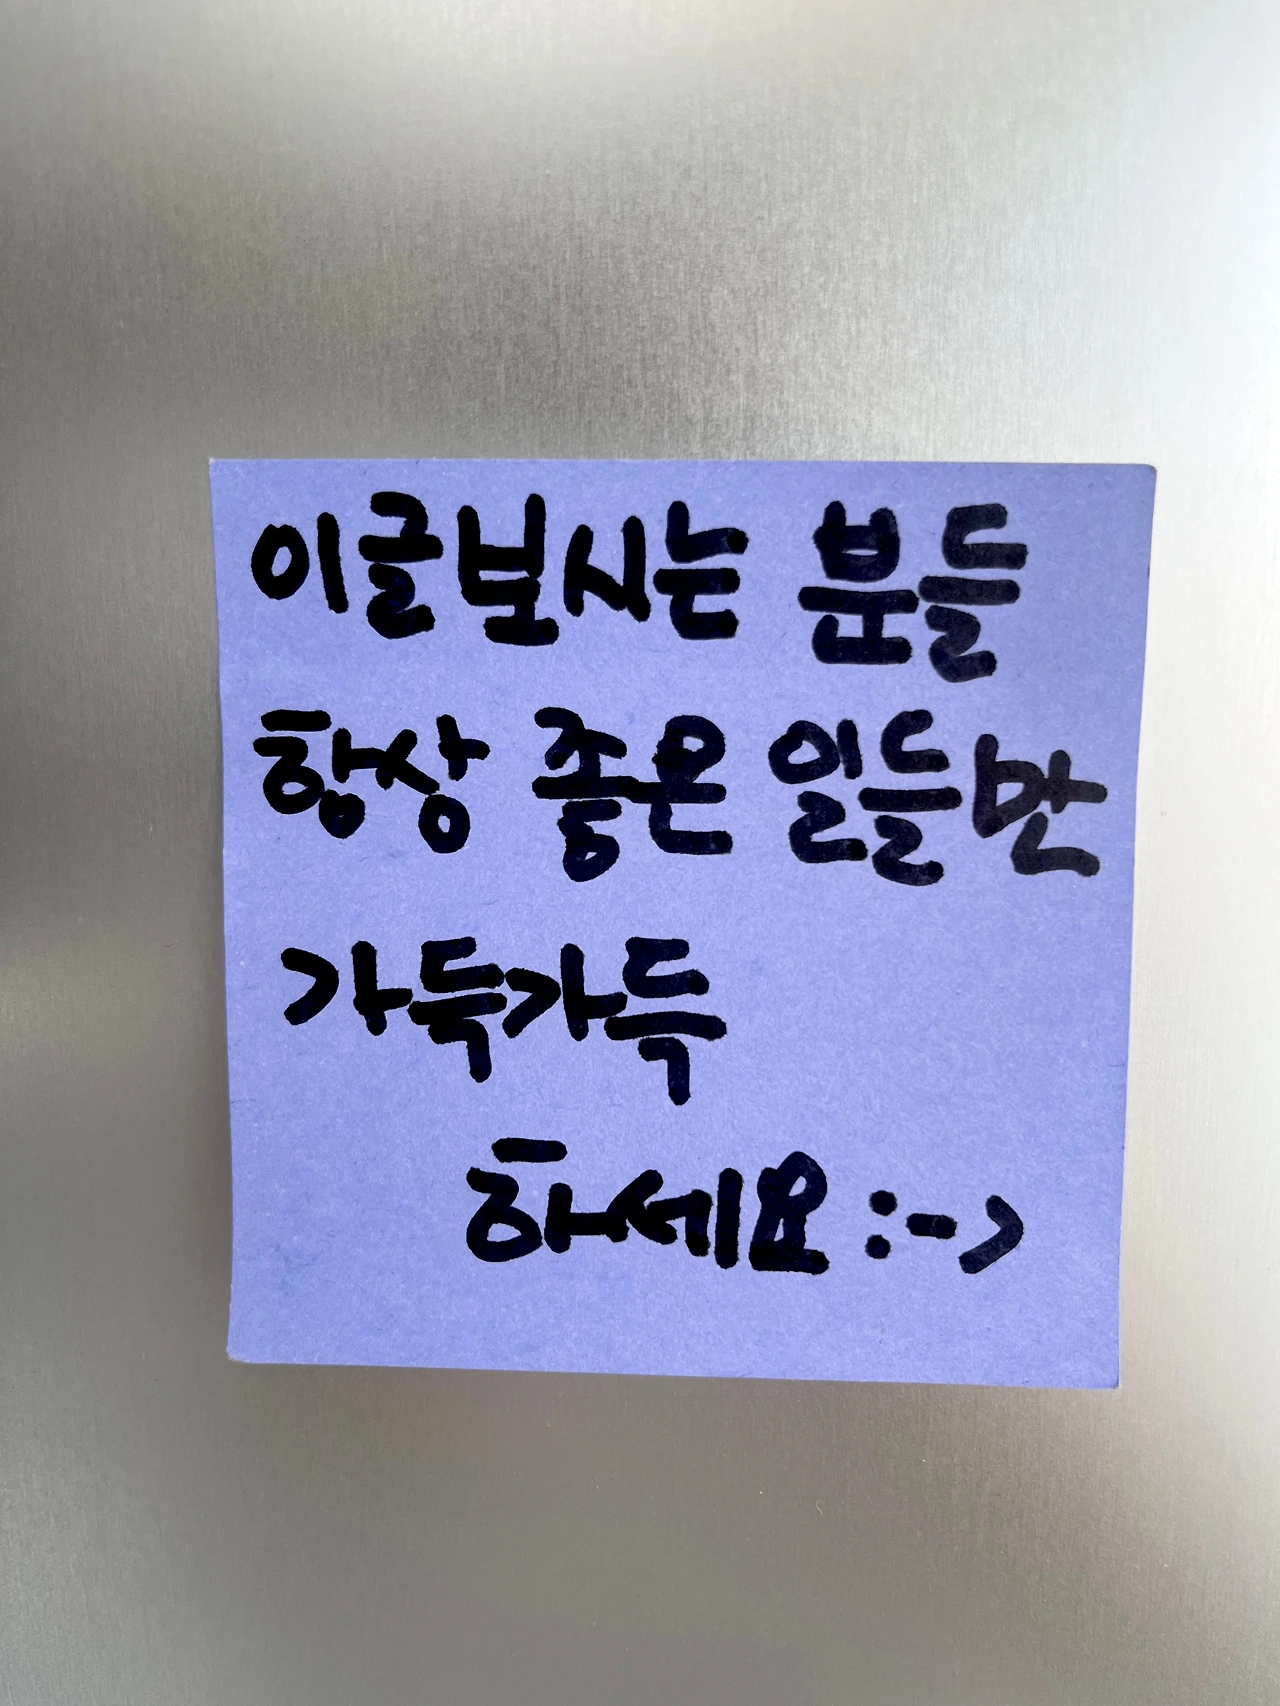 이글보시는 분들
항상 좋은 일들만
가득가득
하세요 :->